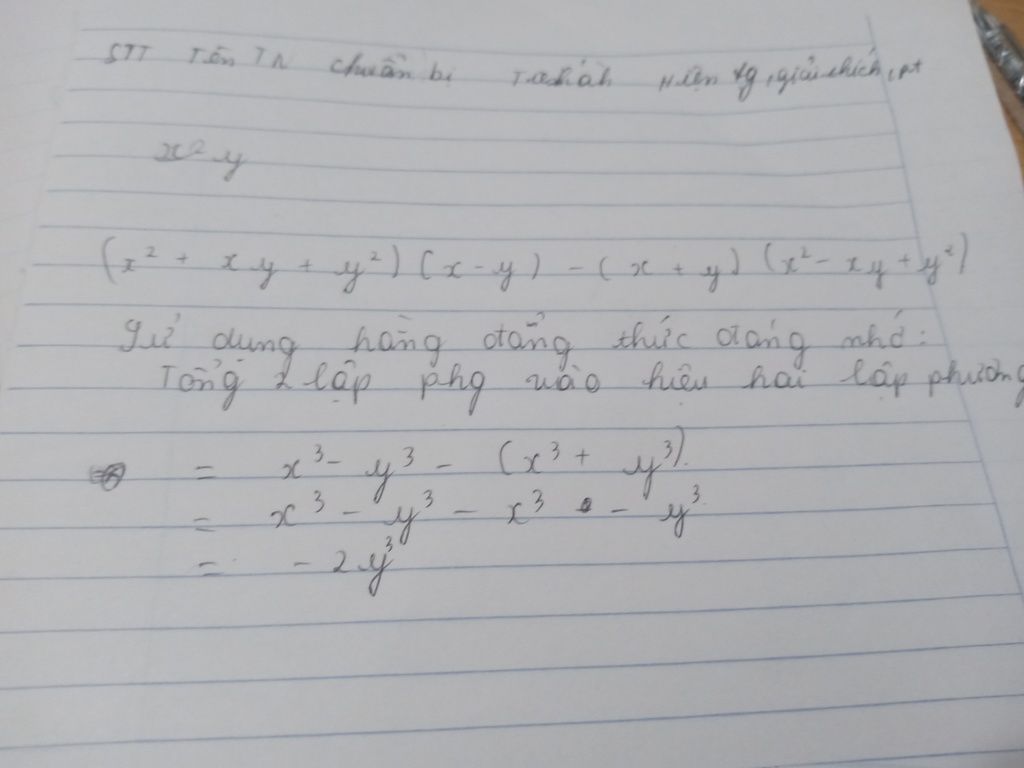 STT Tên TN chuẩn bị T.hành Hiện tg, giải thích, pt
x² y
(x² + xy + y²) (x - y) - (x + y) (x² - xy + y²)
Sử dụng hằng đẳng thức đáng nhớ:
Tổng 2 lập phg vào hiệu hai lập phương
= x³ - y³ - (x³ + y³).
= x³ - y³ - x³ - y³
= - 2y³